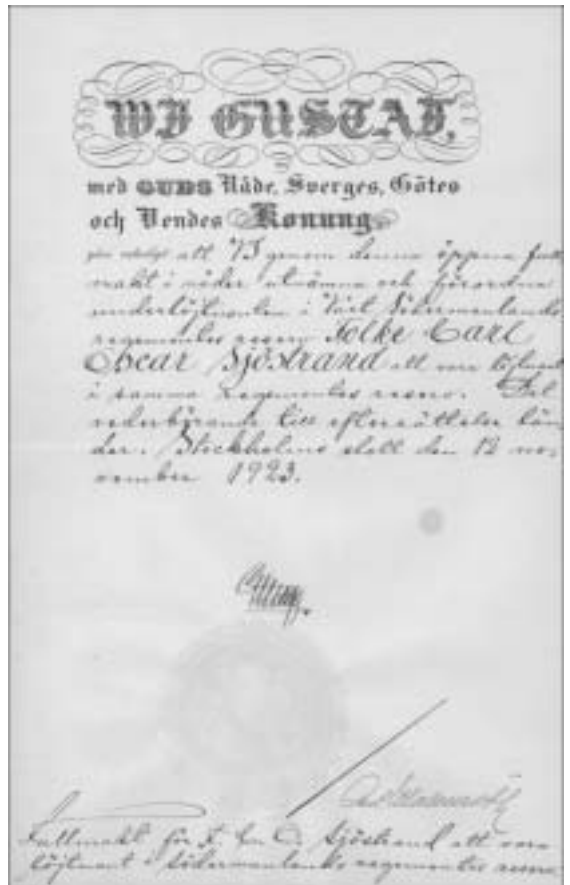 WJ GUSTAF,
med GUDS Nåde, Sverges, Götes
och Vendes Konung,
göra veterligt att VJ genom denna öppna full
makt i nåder utnämna och förordna
underlöjtnanten i Vårt Södermanlands
regementes reserv Folke Carl
Oscar Sjöstrand att vara löjtnant
i samma regementes reserv. Det
vederbörande till efterrättelse län-
der. Stockholms slott den 12 no-
vember 1923.
Fullmakt för F. C. O. Sjöstrand att vara
löjtnant i Södermanlands regementes reserv.